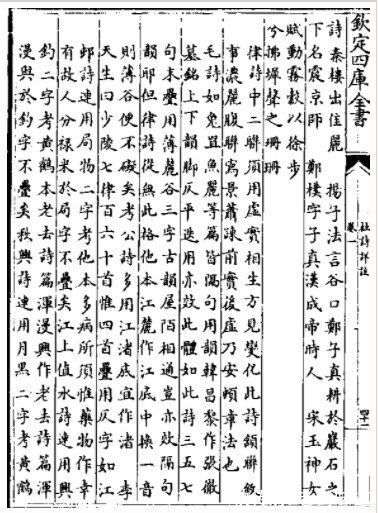 欽定四庫全書
杜詩詳註
卷一
罕二
詩秦樓出佳麗 揚子法言谷口鄭子真耕於巖石之
下名震京師 鄭樸字子真漢成帝時人 宋玉神女
賦動霧縠以徐步
兮拂墀聲之珊珊
律詩中二聯須用虛實相生方見變化此詩頷聯敘
事濃麗腹聯寫景蕭疎前實後虛乃安頓章法也
毛詩如兔罝魚麗等篇皆隔句用韻韓昌黎作張徹
墓銘上下韻脚仄平迭用亦效此體如此詩三五七
句末疊用薄麓谷三字古韻屋陌相通豈亦效隔句
韻耶但律詩從無此格他本江麓作江底中換一音
則薄谷便不礙矣考公詩多用江渚底宜作渚 李
天生曰少陵七律百六十首惟四首疊用仄字如江
邨詩連用局物二字考他本多病所須惟藥物作幸
有故人分祿米於局字不疊矣江上值水詩連用興
釣二字考黃鶴本老去詩篇渾漫興作老去詩篇渾
漫與於釣字不疊矣秋興詩連用月黑二字考黃鶴